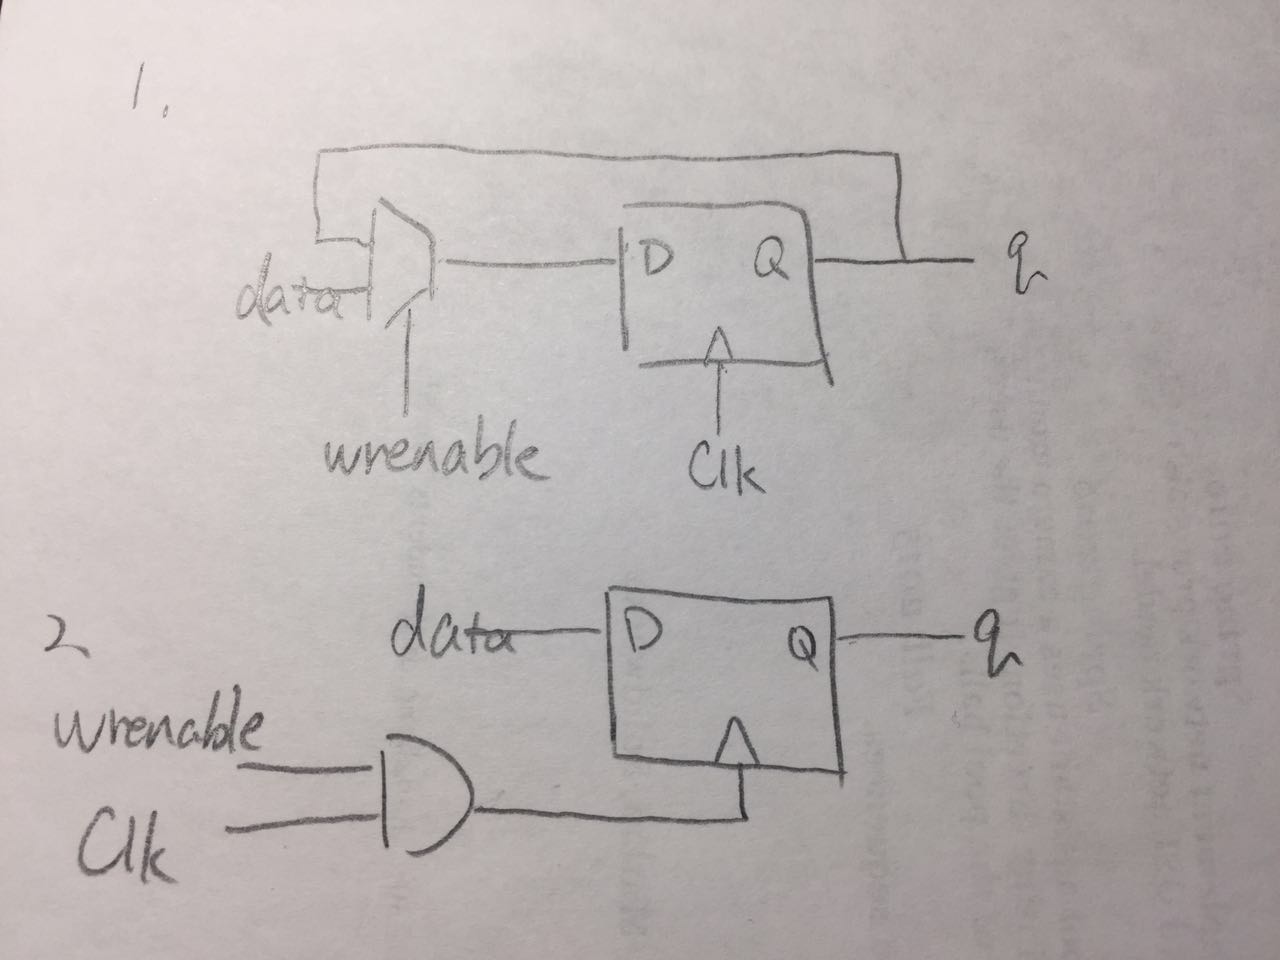 1.
data
D Q
q
wrenable
Clk
2
data
D Q
q
wrenable
Clk